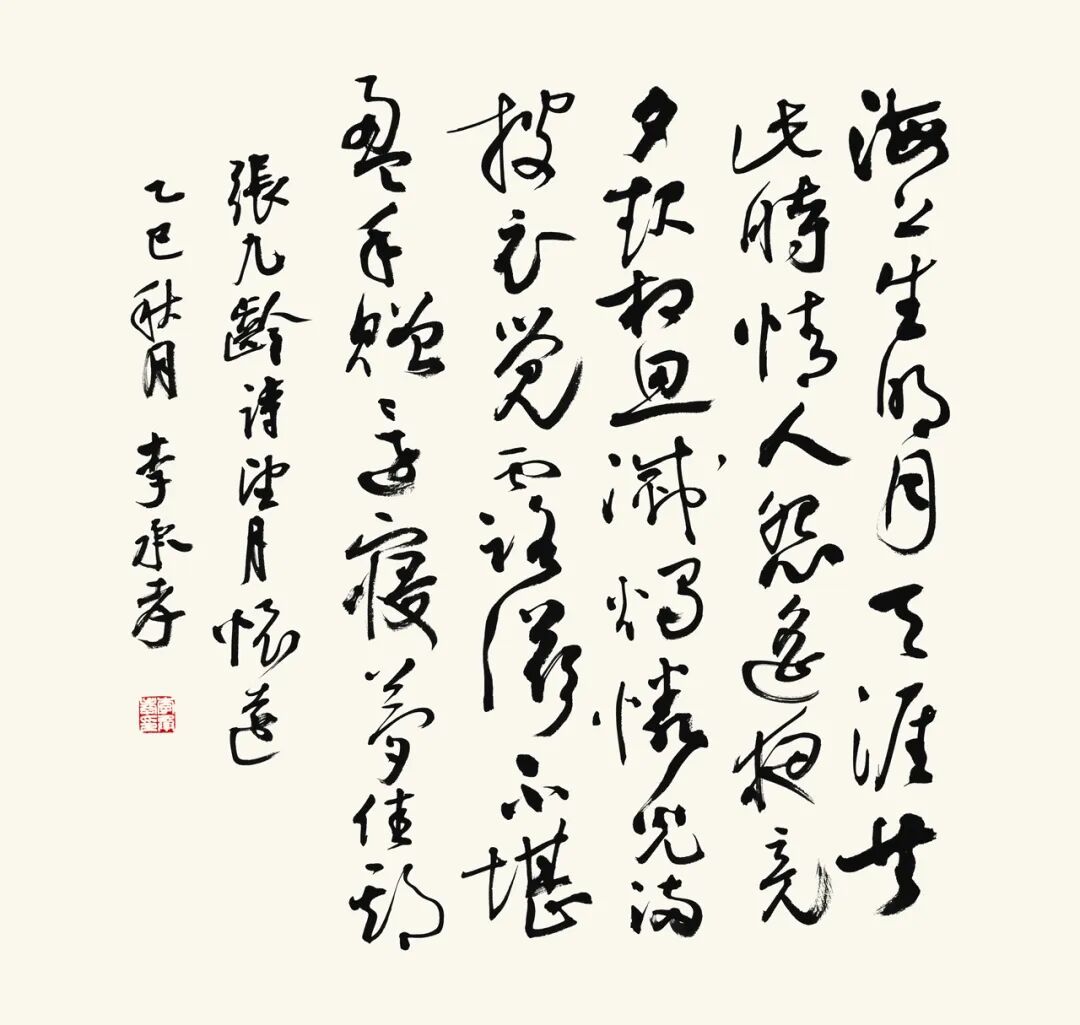 海上生明月天涯共
此時情人怨遙夜竟
夕起相思滅燭憐光滿
披衣覺露滋不堪
盈手贈還寢夢佳期
張九齡詩望月懷遠
乙巳秋月 李承孝